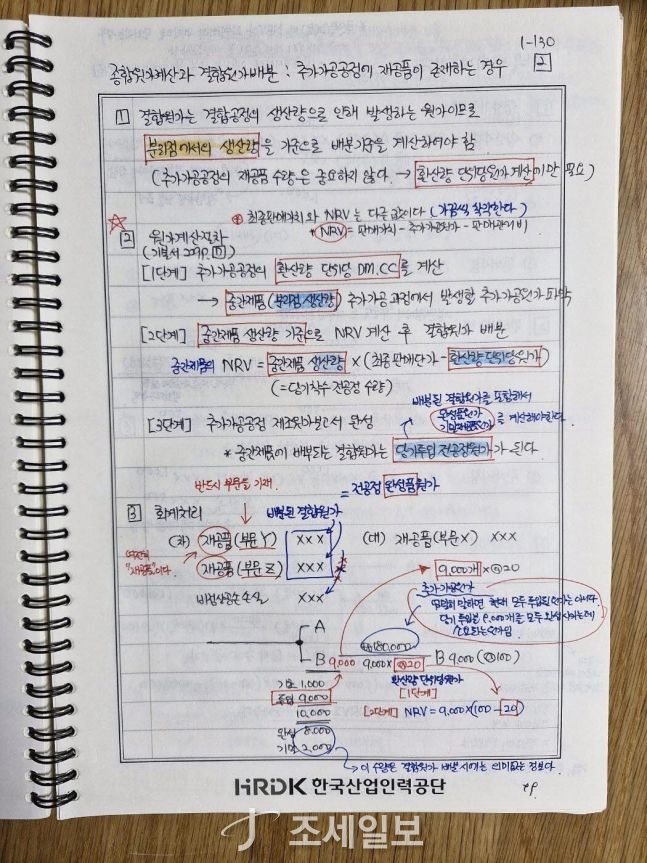 1-130
종합원가계산과 결합원가배분 : 추가가공공정에 재공품이 존재하는 경우
1 결합원가는 결합공정의 생산량으로 인해 발생하는 원가이므로
분리점에서의 생산량을 기준으로 배분기준을 계산하여야 함
(추가가공공정의 재공품 수량은 중요하지 않다. → 환산량 단위당원가 계산에만 필요)
⊕ 최종판매가치와 NRV는 다른 값이다 (가끔씩 착각한다)
* NRV = 판매가치 - 추가가공원가 - 판매관리비
2 원가계산절차
[1단계] 추가가공공정의 환산량 단위당 DM, CC를 계산
→ 중간제품(분리점 생산량) 추가가공 과정에서 발생할 추가가공원가 파악
[2단계] 중간제품 생산량 기준으로 NRV 계산 후 결합원가 배분
중간제품의 NRV = 중간제품 생산량 × (최종판매단가 - 환산량 단위당원가)
(= 당기착수 전공정 수량)
배분된 결합원가를 포함해서
완성품원가
기말재공품원가 를 계산해야한다.
[3단계] 추가가공공정 제조원가보고서 완성
* 중간제품에 배분되는 결합원가는 당기투입 전공정원가가 된다.
= 전공정 완성품원가
반드시 부문을 기재.
배분된 결합원가
3 회계처리
(차) 재공품(부문Y) ××× (대) 재공품(부문X) ×××
여전히 "재공품"이다.
재공품(부문Z) ×××
비정상공손손실 ×××
9,000개 × @20
추가가공원가
엄밀히 말하면 현재 모두 투입된 원가는 아니다.
당기 투입분 9,000개를 모두 완성시키는데
소요되는 원가임
A
₩180,000
B 9,000 9,000 × @20 B 9,000 (@100)
환산량 단위당원가
[1단계]
기초 1,000
투입 9,000
10,000
[2단계] NRV = 9,000×(100-20)
완성 8,000
기말 2,000
→ 이 수량은 결합원가 배분 시에는 의미없는 정보다.
HRDK 한국산업인력공단
조세일보